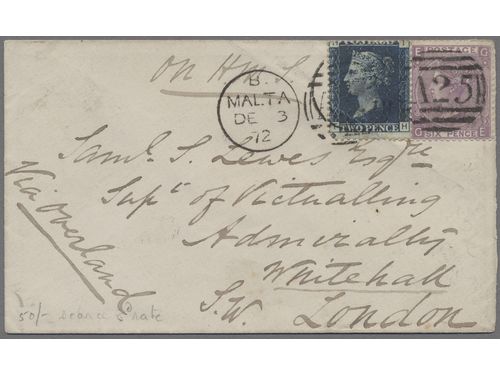 On H.M.S.
B.
MALTA
DE 3
72
TWO PENCE
H
E POSTAGE G
A25
G SIX PENCE E
Saml. S. Lewes Esqre
Supt of Victualling
Admiralty
Whitehall
S.W. London
Via Overland
50/- scarce rate